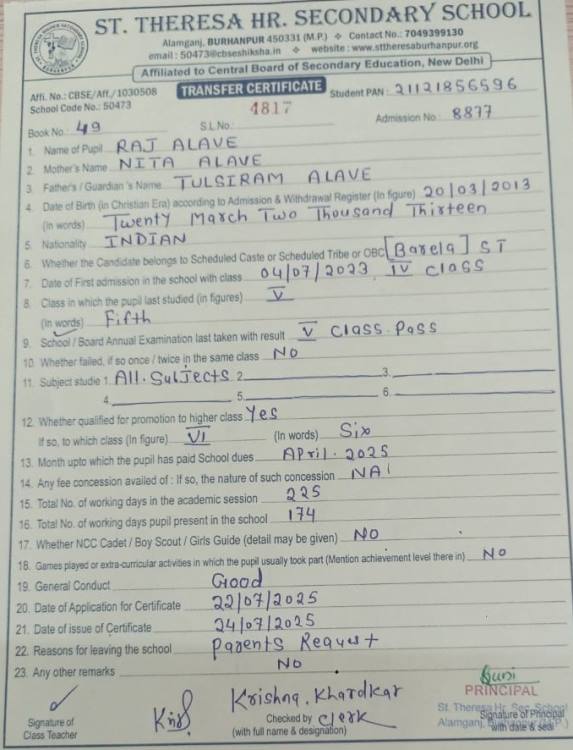 ST. THERESA HR. SECONDARY SCHOOL
Alamganj, BURHANPUR 450331 (M.P.) ❖ Contact No.: 7049399130
email : 50473@cbseshiksha.in ❖ website : www.sttheresaburhanpur.org
Affiliated to Central Board of Secondary Education, New Delhi
Affi. No.: CBSE/Aff./1030508 TRANSFER CERTIFICATE Student PAN : 21121856596
School Code No.: 50473 4817 Admission No 8877
Book No.: 49 S.L.No.:
1. Name of Pupil RAJ ALAVE
2. Mother's Name NITA ALAVE
3. Father's / Guardian's Name TULSIRAM ALAVE
4. Date of Birth (in Christian Era) according to Admission & Withdrawal Register (In figure) 20/03/2013
(In words) Twenty March Two Thousand Thirteen
5. Nationality INDIAN
6. Whether the Candidate belongs to Scheduled Caste or Scheduled Tribe or OBC [Barela] ST
7. Date of First admission in the school with class 04/07/2023 IV Class
8. Class in which the pupil last studied (in figures) V
(In words) Fifth
9. School / Board Annual Examination last taken with result V Class Pass
10. Whether failed, if so once / twice in the same class NO
11. Subject studie 1. All. Subjects 2. 3.
4. 5. 6.
12. Whether qualified for promotion to higher class Yes
If so, to which class (In figure) VI (In words) Six
13. Month upto which the pupil has paid School dues APril. 2025
14. Any fee concession availed of : If so, the nature of such concession NA
15. Total No. of working days in the academic session 225
16. Total No. of working days pupil present in the school 174
17. Whether NCC Cadet / Boy Scout / Girls Guide (detail may be given) NO
18. Games played or extra-curricular activities in which the pupil usually took part (Mention achievement level there in) NO
19. General Conduct Good
20. Date of Application for Certificate 22/07/2025
21. Date of issue of Certificate 24/07/2025
22. Reasons for leaving the school Parents Request
23. Any other remarks NO
PRINCIPAL
Krishna. Khardkar
St. Theresa Hr. Sec. School
Signature of Class Teacher
Checked by Clerk
(with full name & designation)
Alamganj,
Signature of Principal
with date & seal